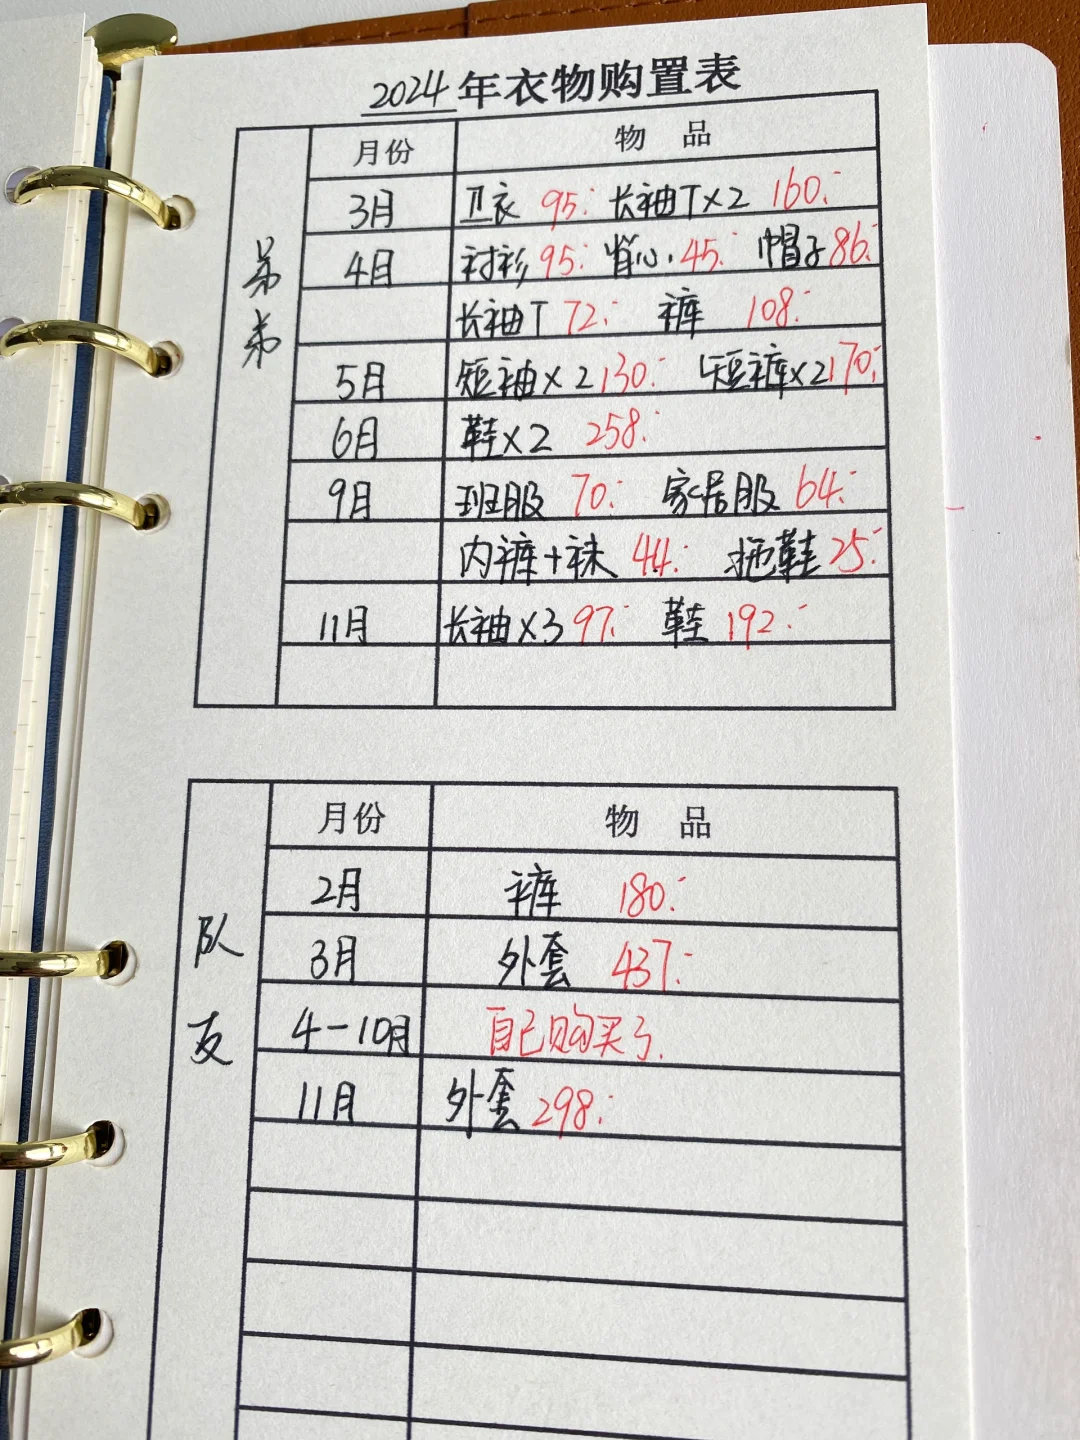 2024年衣物购置表
弟弟
月份 物品
3月 卫衣 95.- 长袖T×2 160.-
4月 衬衫 95.- 背心 45.- 帽子 86.-
长袖T 72.- 裤 108.-
5月 短袖×2 130.- 短裤×2 170.-
6月 鞋×2 258.-
9月 班服 70.- 家居服 64.-
内裤+袜 44.- 拖鞋 25.-
11月 长袖×3 97.- 鞋 192.-
队友
月份 物品
2月 裤 180.-
3月 外套 437.-
4-10月 自己购买了.
11月 外套 298.-